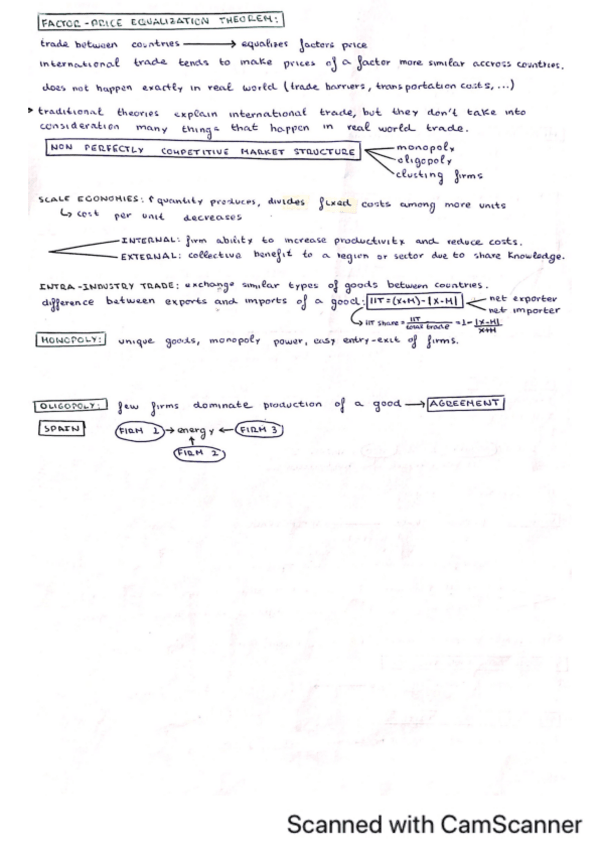 FACTOR-PRICE EQUALIZATION THEOREM:
trade between countries → equalizes factors price
international trade tends to make prices of a factor more similar accross countries.
does not happen exactly in real world (trade barriers, transportation costs, ...)
traditional theories explain international trade, but they don't take into
consideration many things that happen in real world trade.
NON PERFECTLY COMPETITIVE MARKET STRUCTURE
monopoly
oligopoly
clusting firms
SCALE ECONOMIES: ↑ quantity produces, divides fixed costs among more units
↳ cost per unit decreases
INTERNAL: firm ability to increase productivity and reduce costs.
EXTERNAL: collective benefit to a region or sector due to share Knowledge.
INTRA-INDUSTRY TRADE: exchange similar types of goods between countries.
difference between exports and imports of a good: IIT = (X+M) - |X-M| net exporter
net importer
IIT share = IIT / total trade = 1 - |X-M| / X+M
MONOPOLY: unique goods, monopoly power, easy entry-exit of firms.
OLIGOPOLY: few firms dominate production of a good → AGREEMENT
SPAIN FIRM 1 → energy ← FIRM 3
↑
FIRM 2
Scanned with CamScanner